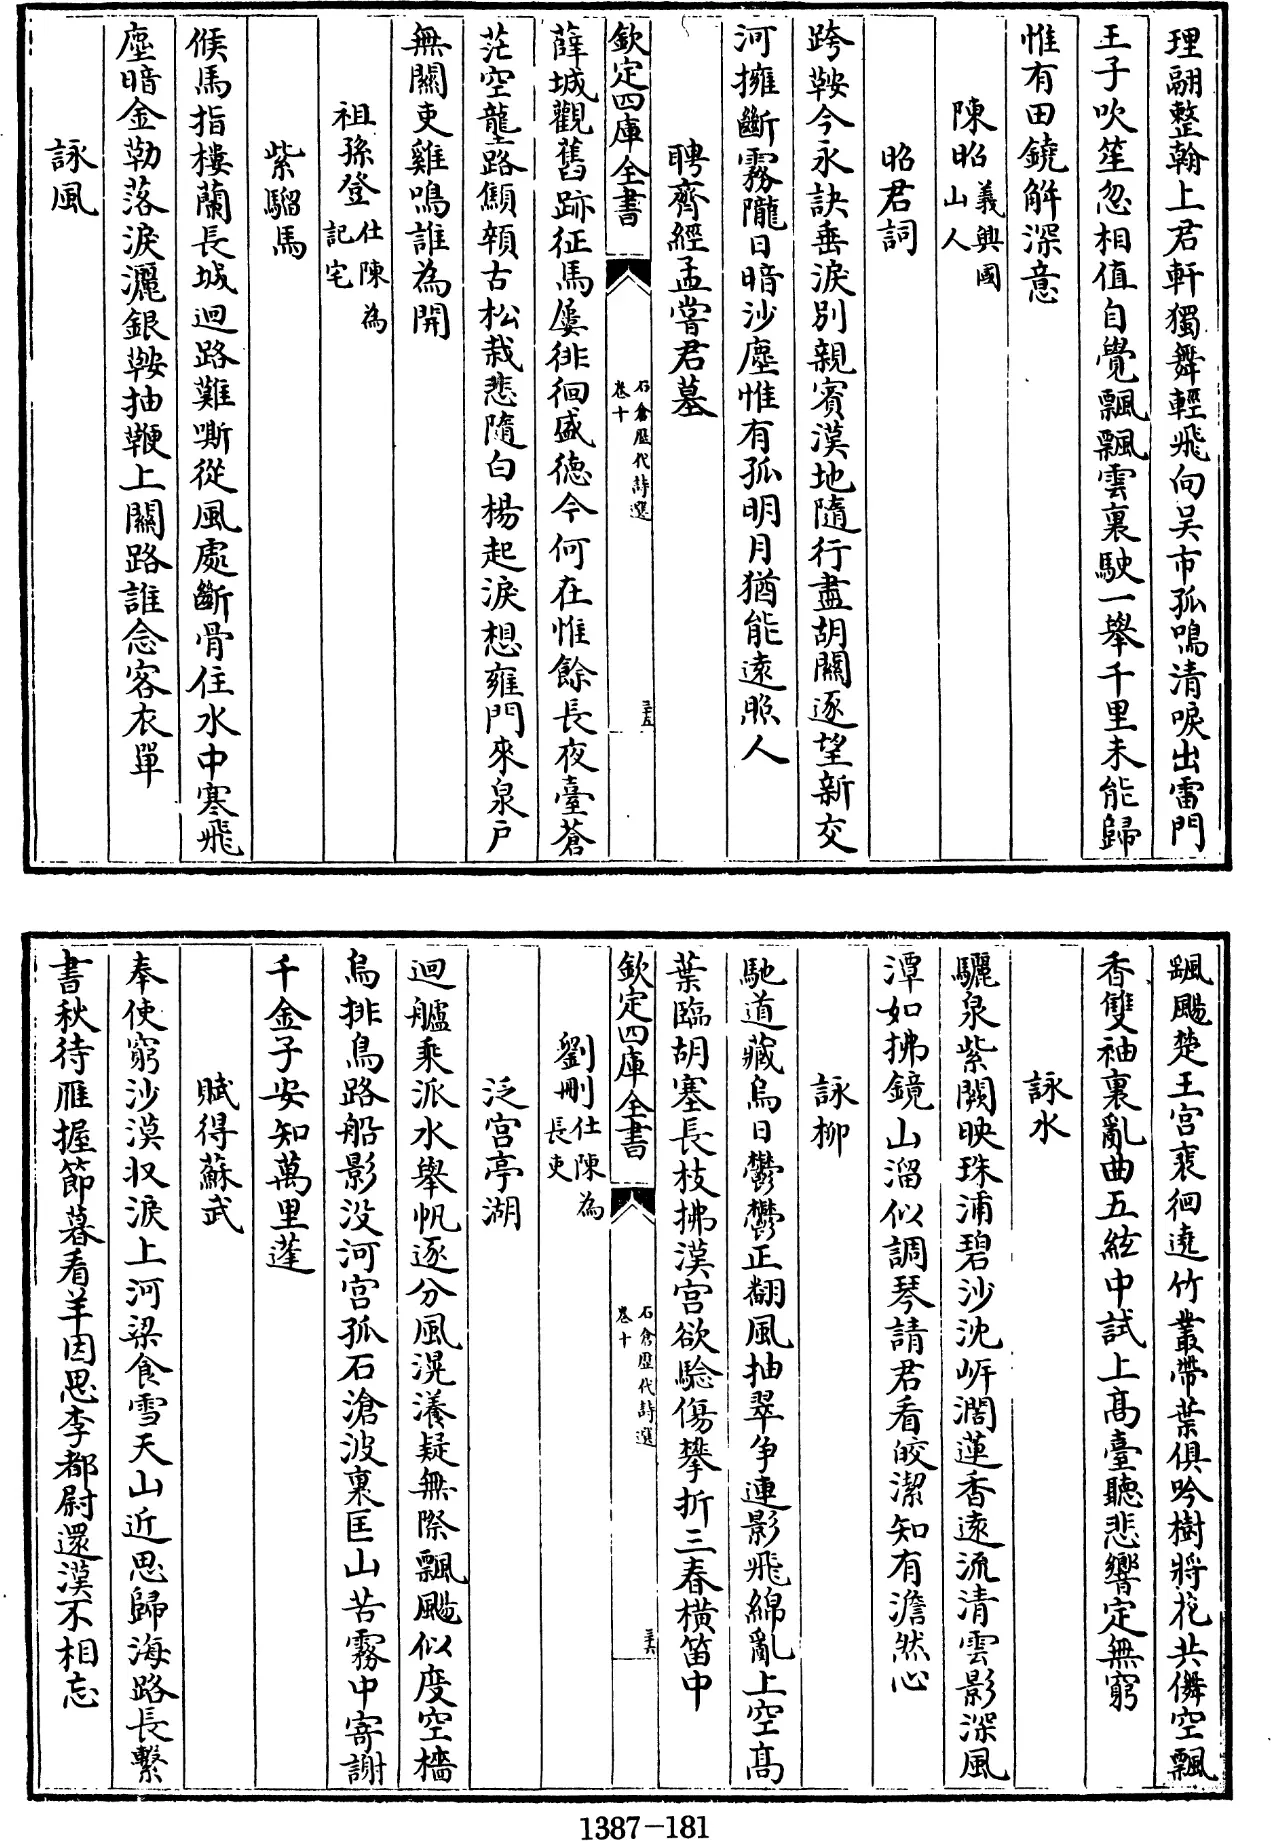 理翮整翰上君軒獨舞輕飛向吳市孤鳴清唳出雷門
王子吹笙忽相值自覺飄飄雲裏駛一舉千里未能歸
惟有田鐃解深意
陳昭義興國山人
昭君詞
跨鞍今永訣垂淚別親賓漢地隨行盡胡關逐望新交
河擁斷霧隴日暗沙塵惟有孤明月猶能遠照人
聘齊經孟嘗君墓
欽定四庫全書
石倉歷代詩選
卷十
三五
薛城觀舊跡征馬屢徘徊盛德今何在惟餘長夜臺蒼
茫空壟路顦顇古松栽悲隨白楊起淚想雍門來泉户
無關吏雞鳴誰為開
祖孫登仕陳為記宅
紫騮馬
候馬指樓蘭長城迥路難嘶從風處斷骨住水中寒飛
塵暗金勒落淚灑銀鞍抽鞭上關路誰念客衣單
詠風
颻颺楚王宮裴徊遶竹叢帶葉俱吟樹將花共儛空飄
香雙袖裏亂曲五絃中試上高臺聽悲響定無窮
詠水
驪泉紫闕映珠浦碧沙沈岍濶蓮香遠流清雲影深風
潭如拂鏡山溜似調琴請君看皎潔知有澹然心
詠柳
馳道藏烏日鬱鬱正翻風抽翠争連影飛綿亂上空高
葉臨胡塞長枝拂漢宮欲驗傷攀折三春横笛中
欽定四庫全書
石倉歷代詩選
卷十
三六
劉刪仕陳為長吏
泛宮亭湖
迴艫乘派水舉帆逐分風滉瀁疑無際飄颺似度空檣
烏排鳥路船影没河宮孤石滄波裏匡山苦霧中寄謝
千金子安知萬里蓬
賦得蘇武
奉使窮沙漠収淚上河梁食雪天山近思歸海路長繫
書秋待雁握節暮看羊因思李都尉還漢不相忘
1387-181